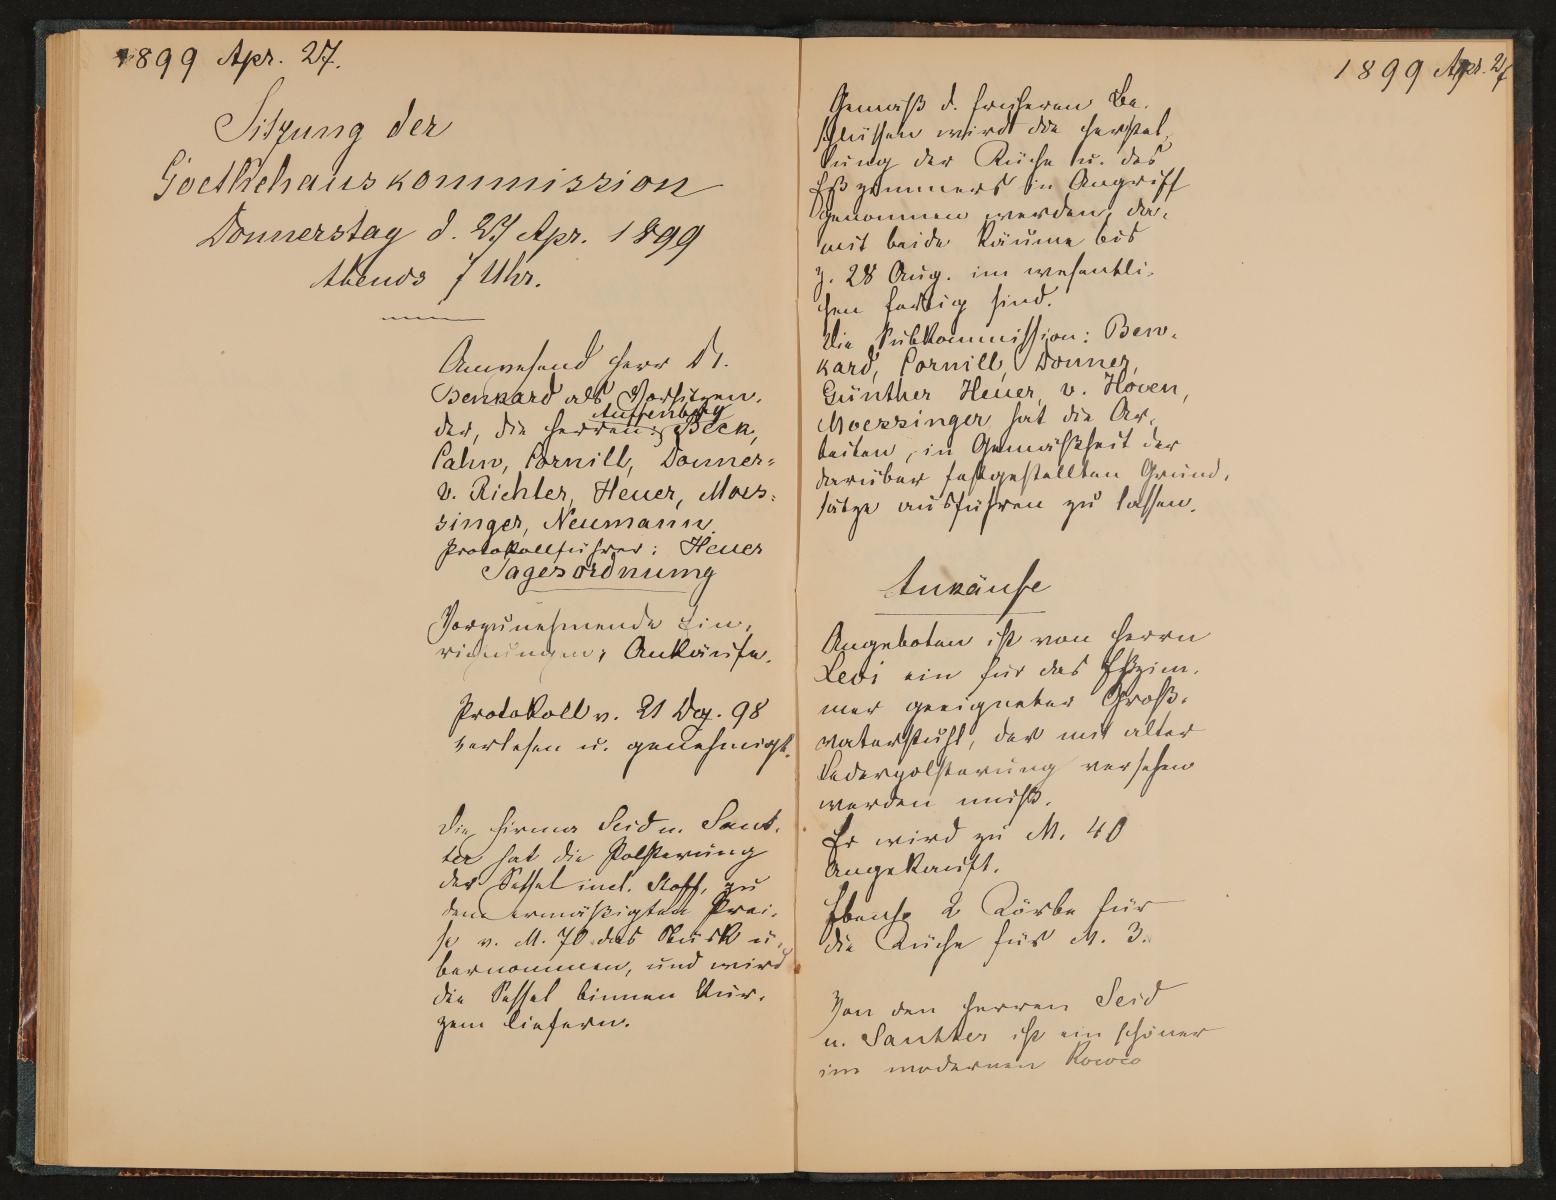 1899 Apr. 27.
Sitzung der
Goethehauskommission
Donnerstag d. 27 Apr. 1899
Abends 7 Uhr.
Anwesend Herr Dr.
Benkard als Vorsitzen-
Auffenberg
der, die Herren: Beck,
Cahn, Cornill, Donner-
v. Richter, Heuer, Moes-
singer, Neumann.
Protokollführer: Heuer
Tagesordnung
Vorzunehmende Ein-
richtungen, Ankäufe.
Protokoll v. 21 Dez. 98
verlesen u. genehmigt.
Die Firma Seid u. Saut-
ter hat die Polsterung
der Sessel incl. Stoff, zu
dem ermäßigten Prei-
se v. M. 70 das Stück ü-
bernommen, und wird
die Sessel binnen Kur-
zem liefern.
1899 Apr. 27
Gemäß d. früheren Be-
schlüssen wird die Herstel-
lung der Küche u. des
Eßzimmers in Angriff
genommen werden, da-
mit beide Räume bis
z. 28 Aug. im wesentli-
chen fertig sind.
Die Subkommission: Ben-
kard, Cornill, Donner,
Günther Heuer, v. Hoven,
Moessinger hat die Ar-
beiten, in Gemäßheit der
darüber festgestellten Grund-
sätze ausführen zu lassen.
Ankäufe
Angeboten ist von Herrn
Levi ein für das Eßzim-
mer geeigneter Groß-
vaterstuhl, der mit alter
Lederpolsterung versehen
werden muß.
Er wird zu M. 40
angekauft.
Ebenso 2 Körbe für
die Küche für M. 3.
Von den Herren Seid
u. Sautter ist ein schöner
im modernen Rococo